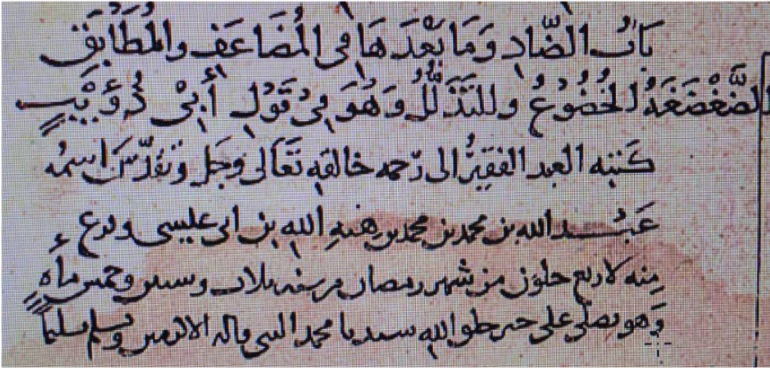 بَابُ الضَّادِ وَمَا بَعْدَهَا فِي الْمُضَاعَفِ وَالْمُطَابَقِ
الضَّغْضَغَةُ الْخُضُوعُ وَالتَّذَلُّلُ وَهُوَ فِي قَوْلِ أَبِي ذُؤَيْبٍ
كتبه العبد الفقيرُ الى رحمه خالقه تَعَالَى وجَلَّ وَتَقَدَّسَ اسمُه
عَبْدُ الله بن محمد بن محمد بن هبه الله بن ابى عيسى وفرغ
مِنه لاربع خلون من شهر رمضان من سنه ثلاث وستين وخمس مائهٍ
وَهو يصلى على خير خلق الله سيدنا محمد النبى واله الاكرمين ويسلم تسليماً